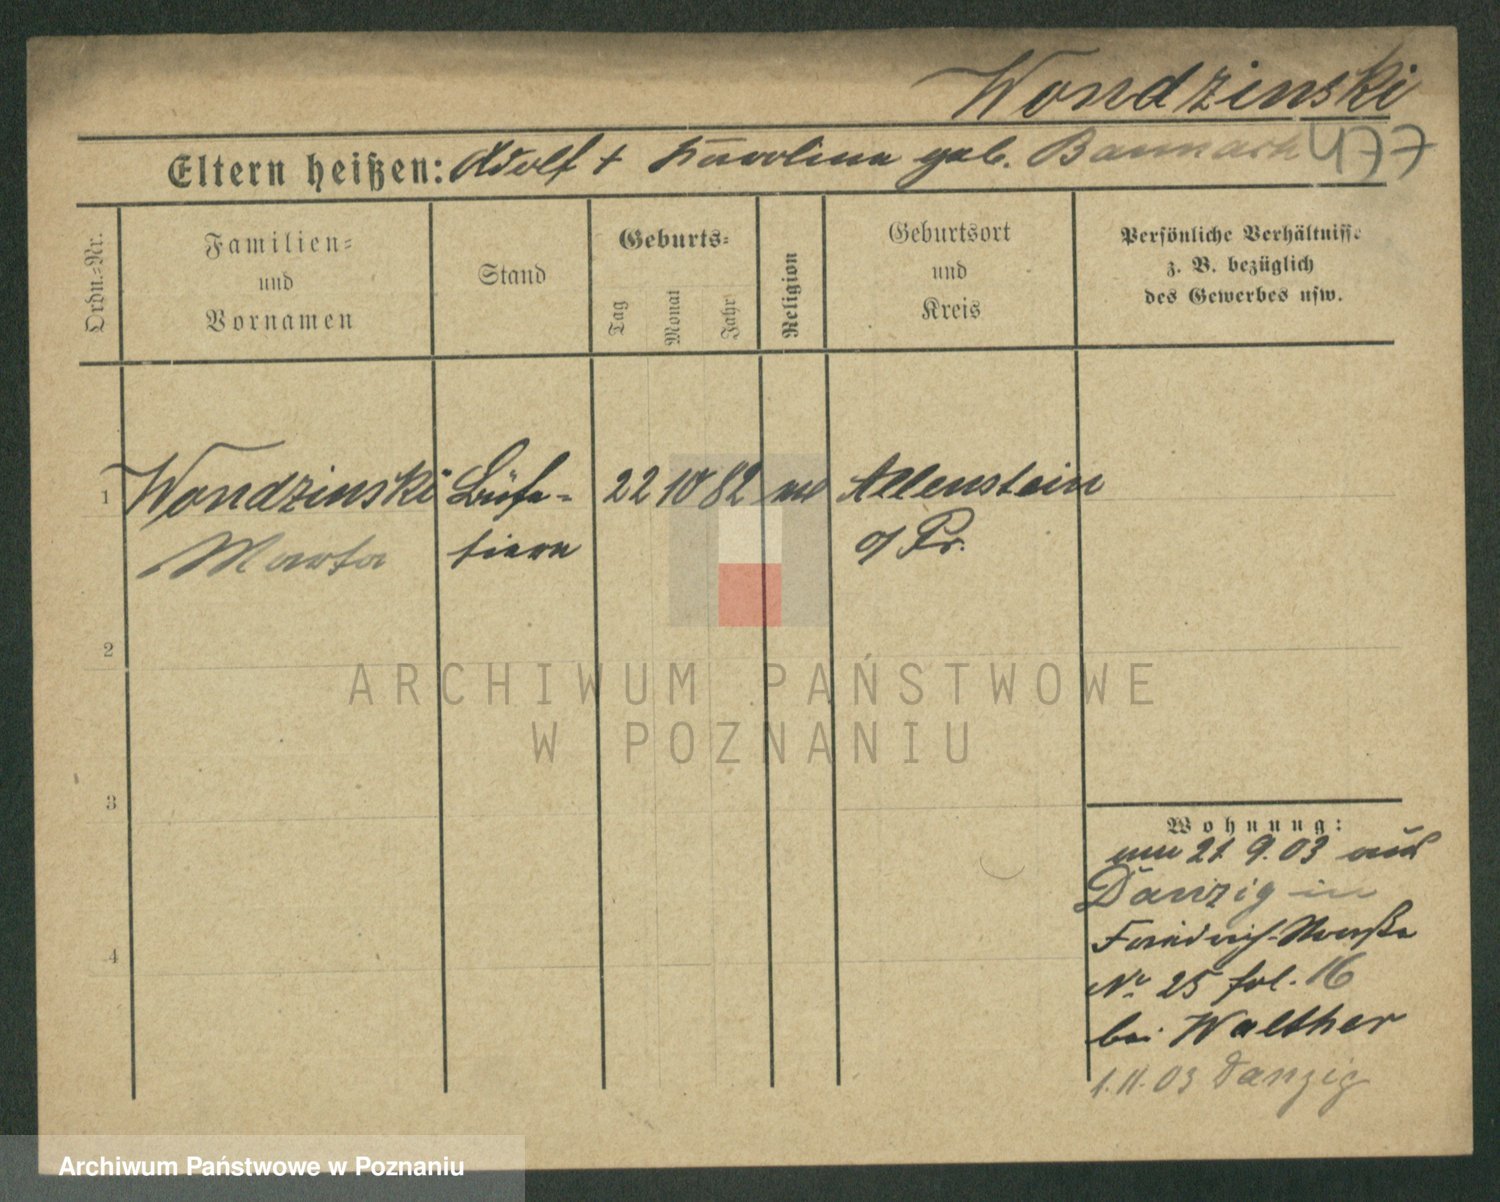 Wondzinski
477
Eltern heißen: Adolf + Karoline geb. Bannach
Ordn.=Nr.
Familien=
und
Vornamen
Stand
Geburts=
Tag
Monat
Jahr
Religion
Geburtsort
und
Kreis
Persönliche Verhältnisse
z. B. bezüglich
des Gewerbes usw.
1 Wondzinski Büfe- 22 10 82 Allenstein
Marta tiere o/ Pr.
2
3
4
Wohnung:
am 21. 9. 03 aus
Danzig in
Friedrich-Straße
No 25 fol. 16
bei Walther
1. 11. 03 Danzig
ARCHIWUM PAŃSTWOWE
W POZNANIU
Archiwum Państwowe w Poznaniu